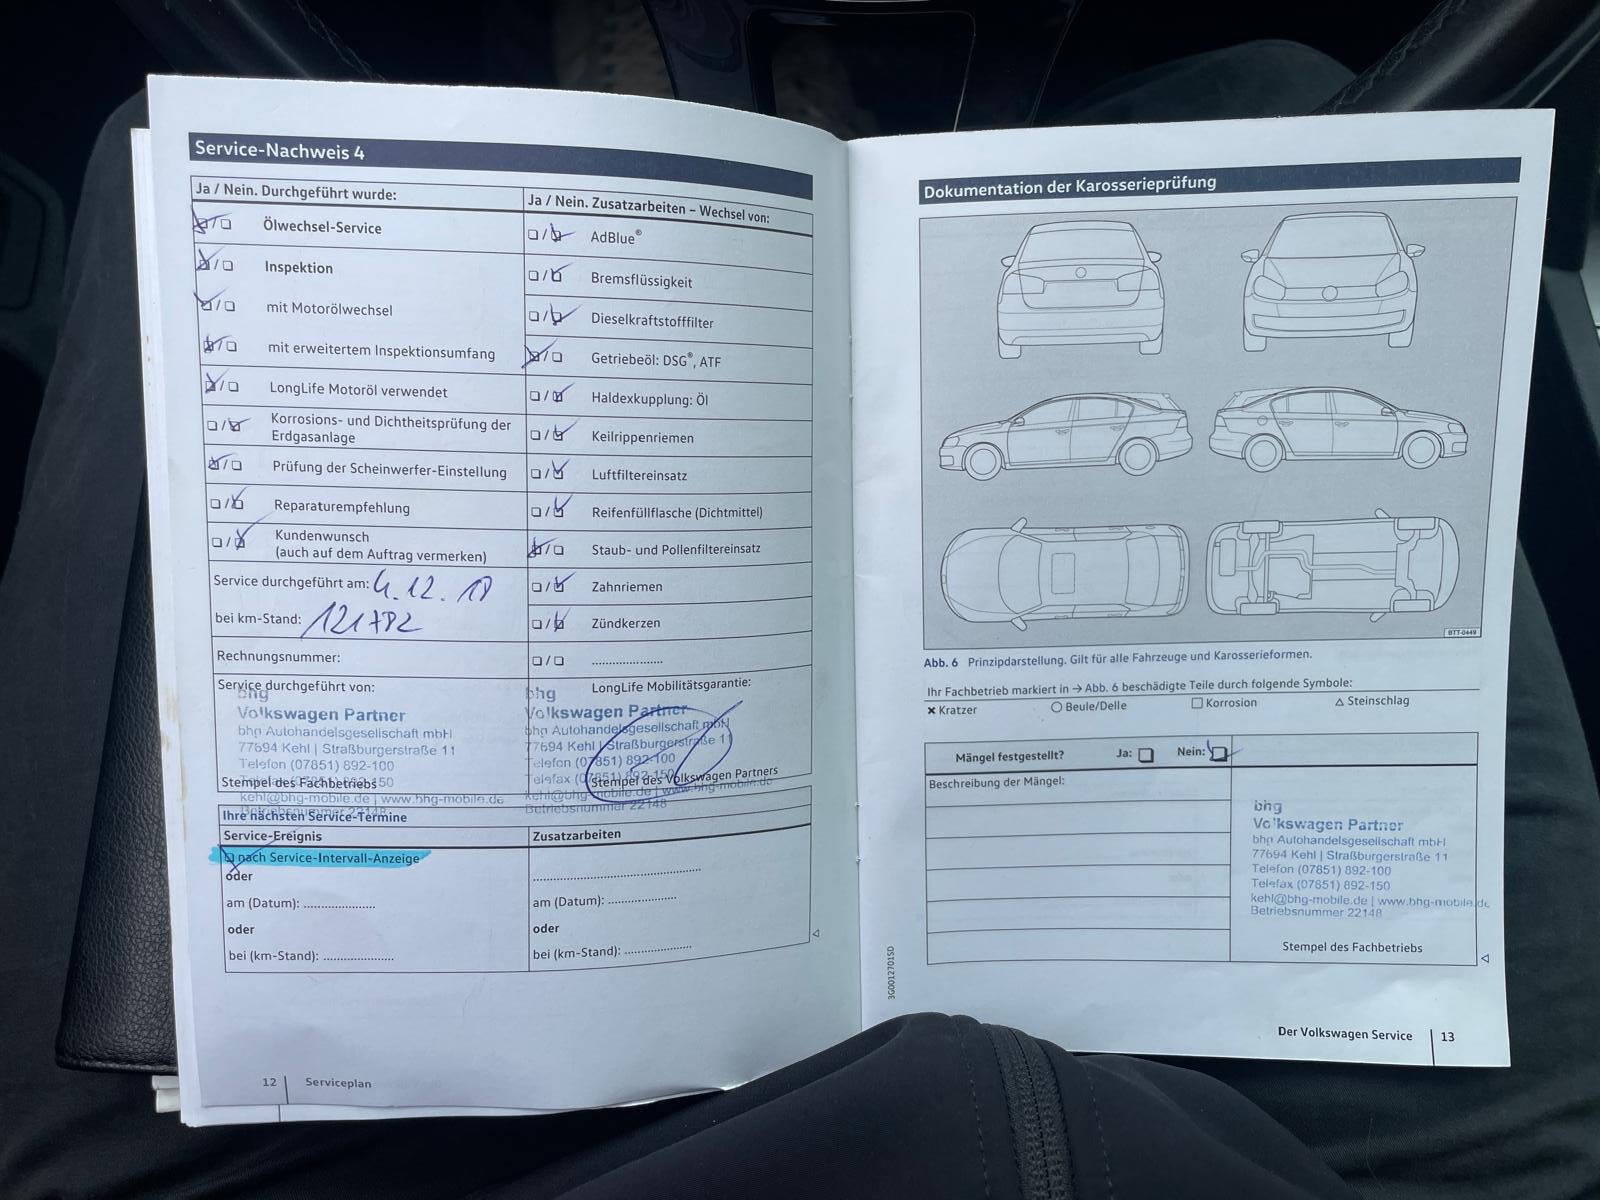 Service-Nachweis 4
Ja / Nein. Durchgeführt wurde:
Ölwechsel-Service
Inspektion
mit Motorölwechsel
mit erweitertem Inspektionsumfang
LongLife Motoröl verwendet
Korrosions- und Dichtheitsprüfung der
Erdgasanlage
Prüfung der Scheinwerfer-Einstellung
Reparaturempfehlung
Kundenwunsch
(auch auf dem Auftrag vermerken)
Service durchgeführt am: 4.12.18
bei km-Stand: 121782
Rechnungsnummer:
Service durchgeführt von:
bhg
Volkswagen Partner
bhg Autohandelsgesellschaft mbH
77694 Kehl | Straßburgerstraße 11
Telefon (07851) 892-100
Telefax (07851) 892-150
Stempel des Fachbetriebs
kehl@bhg-mobile.de | www.bhg-mobile.de
Betriebsnummer 22148
Ja / Nein. Zusatzarbeiten – Wechsel von:
AdBlue®
Bremsflüssigkeit
Dieselkraftstofffilter
Getriebeöl: DSG®, ATF
Haldexkupplung: Öl
Keilrippenriemen
Luftfiltereinsatz
Reifenfüllflasche (Dichtmittel)
Staub- und Pollenfiltereinsatz
Zahnriemen
Zündkerzen
....................
LongLife Mobilitätsgarantie:
bhg
Volkswagen Partner
bhg Autohandelsgesellschaft mbH
77694 Kehl | Straßburgerstraße 11
Telefon (07851) 892-100
Telefax (07851) 892-150
Stempel des Volkswagen Partners
kehl@bhg-mobile.de | www.bhg-mobile.de
Betriebsnummer 22148
Ihre nächsten Service-Termine
Service-Ereignis
nach Service-Intervall-Anzeige
oder
am (Datum): ....................
oder
bei (km-Stand): ....................
Zusatzarbeiten
..............................................
am (Datum): ....................
oder
bei (km-Stand): ....................
12 | Serviceplan
Dokumentation der Karosserieprüfung
BTT-0449
Abb. 6 Prinzipdarstellung. Gilt für alle Fahrzeuge und Karosserieformen.
Ihr Fachbetrieb markiert in → Abb. 6 beschädigte Teile durch folgende Symbole:
✖ Kratzer ○ Beule/Delle □ Korrosion △ Steinschlag
Mängel festgestellt? Ja: Nein:
Beschreibung der Mängel:
bhg
Volkswagen Partner
bhg Autohandelsgesellschaft mbH
77694 Kehl | Straßburgerstraße 11
Telefon (07851) 892-100
Telefax (07851) 892-150
kehl@bhg-mobile.de | www.bhg-mobile.de
Betriebsnummer 22148
Stempel des Fachbetriebs
3G0012701SD
Der Volkswagen Service | 13